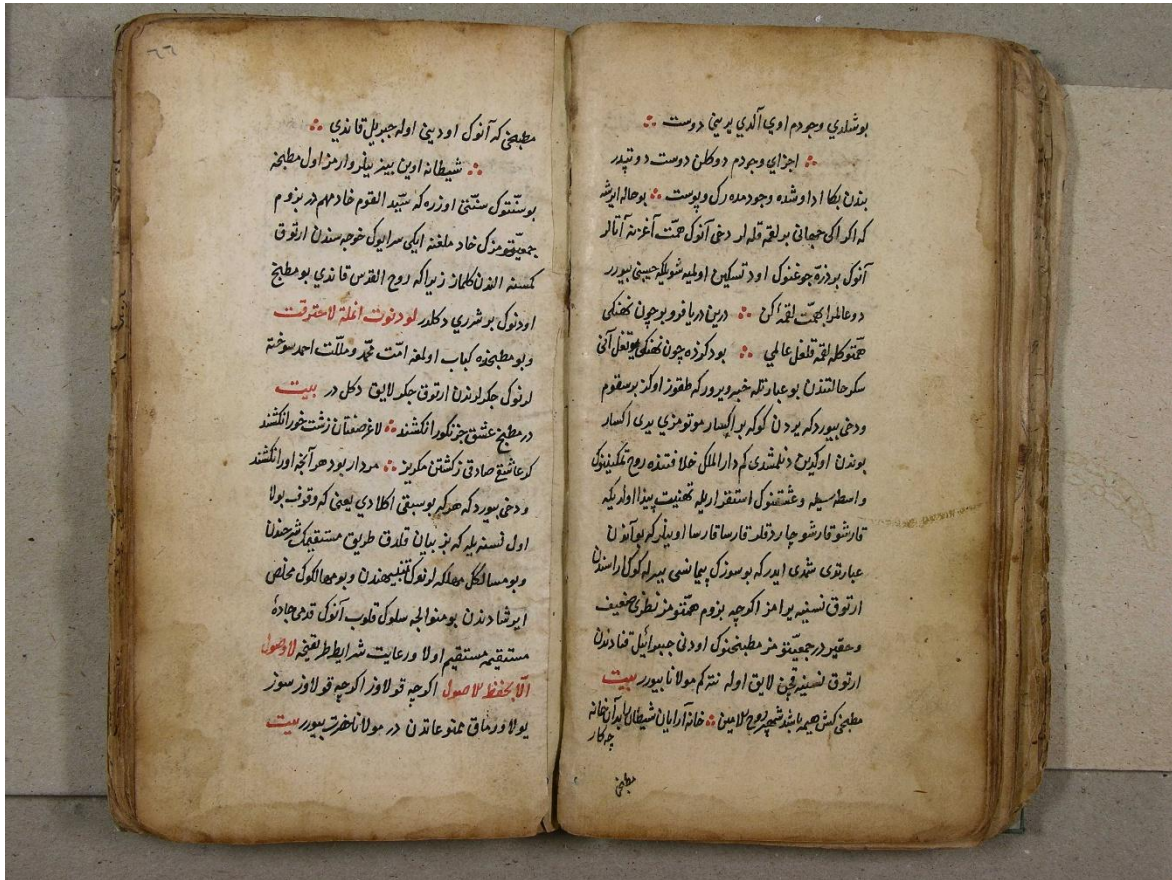 بوشلدي وجودم اوي آلدي يريني دوست ∴
∴ اجزاي وجودم دوكلن دوست دوتپدر
بندن بكا اد اوشده وجودمده رك وپوست ∴ بو حاله ايرشه
كه اكر ايكي جهاني بر لقمه قله لر دخي آنوك همّت آغزنه آتالر
آنوك بو ذرّه جوغنوك اود تسكين اولميه شويلكه حسيني بيورر
دو عالم را بهمّت لقمه اكن ∴ درين دريا فرو بر چون نهنكي
همّتوكله لقمه قلغل عالمي ∴ بو دكزده چون نهنكي يوتغل آني
سكر حالتندن بو عبارتله خبر ويرور كه طقوز اوكز بر سقوم
ودخي بيورد كه يردن كوكه بر اكسار موتومزي يدي اكسار
بوندن اوكدين دنلمشدي كم دار الملك خلافتنده روح تمكينينوك
واسطه سيله وعشقنوك استقراريله تهنيت پيدا اولديكه
قارشو قارشو چاردقلر قارسا قارسا اوينلر كه بو آندن
عبارتوي شمدي ايدر كه بو سوزك پيمانسي بيرله كوك اراسندن
ارتوق نسنيه يرامز اكرچه بزوم همّتومز نظري ضعيف
وحقير در جمعيّتومز مطبخنوك اودني جبرائيل قنادندن
ارتوق نسنيه قچن لايق اوله نته كم مولانا بيورر بيت
مطبخي كش هيمه باشد شهپر روح الامين ∴ خانه آرايان شيطان را بدان خانه
چه كار
مطبخي
٦٦
مطبخي كه آنوك اوديني اوله جبريل قاندي ∴
∴ شيطانه اوين بيز ييلر وارمز اول مطبخه
بو سنّتوك سنّتني اوزره كه سيّد القوم خادمهم در بزوم
جمعيّتومزك خادملغنه ايكي سرايوك خوجه سندن ارتوق
كمسنه الندن كلماز زيرا كه روح القدس قاندي بو مطبخ
اودنوك بو شرري دكلدر لو دنوت انملة لاحترقت
وبو مطبخده كباب اولمغه امّت محمّد وملّت احمد سوخته
لرنوك جكرلرندن ارتوق جكر لايق دكل در بيت
در مطبخ عشق جز نكو را نكشند ∴ لاغر صفتان زشت خو را نكشند
كر عاشق صادقي ز كشتن مكريز ∴ مردار بود هر آنچه او را نكشند
ودخي بيورد كه هر كه بو سبقي اكلادي يعني كه وقوف بولا
اول نسنه يله كه بز بيان قلدق طريق مستقيمك شرحندن
وبو مسالكل مهلكه لرنوك تنبيهندن وبو مهالكوك مخلص
ايرشادندن بو منوالجه سلوك قلوب آنوك قدمي جادهٔ
مستقيمه مستقيم اولا ورعايت شرايط طريقتجه لا وصول
الّا بحفظ الاصول اكرچه قولاوز اكرچه قولاوز سوز
يولا ورماق ممنوعاتدن در مولانا حضرت بيورر بيت